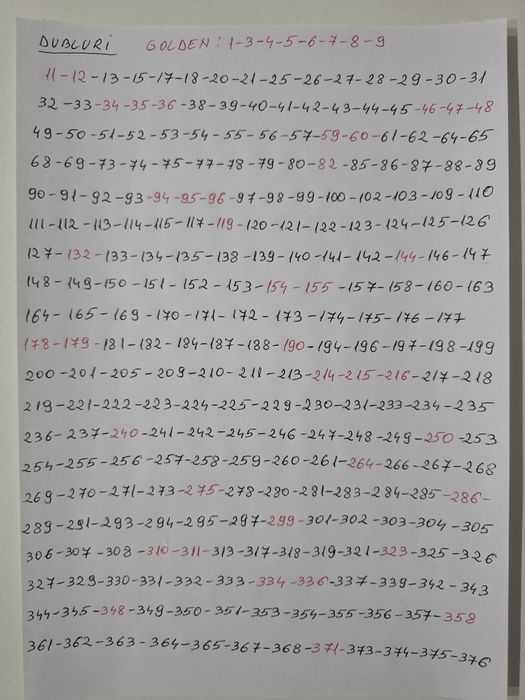 DUBLURI GOLDEN: 1-3-4-5-6-7-8-9
11-12-13-15-17-18-20-21-25-26-27-28-29-30-31
32-33-34-35-36-38-39-40-41-42-43-44-45-46-47-48
49-50-51-52-53-54-55-56-57-59-60-61-62-64-65
68-69-73-74-75-77-78-79-80-82-85-86-87-88-89
90-91-92-93-94-95-96-97-98-99-100-102-103-109-110
111-112-113-114-115-117-119-120-121-122-123-124-125-126
127-132-133-134-135-138-139-140-141-142-144-146-147
148-149-150-151-152-153-154-155-157-158-160-163
164-165-169-170-171-172-173-174-175-176-177
178-179-181-182-184-187-188-190-194-196-197-198-199
200-201-205-209-210-211-213-214-215-216-217-218
219-221-222-223-224-225-229-230-231-233-234-235
236-237-240-241-242-245-246-247-248-249-250-253
254-255-256-257-258-259-260-261-264-266-267-268
269-270-271-273-275-278-280-281-283-284-285-286-
289-291-293-294-295-297-299-301-302-303-304-305
306-307-308-310-311-313-317-318-319-321-323-325-326
327-329-330-331-332-333-334-336-337-339-342-343
344-345-348-349-350-351-353-354-355-356-357-358
361-362-363-364-365-367-368-371-373-374-375-376